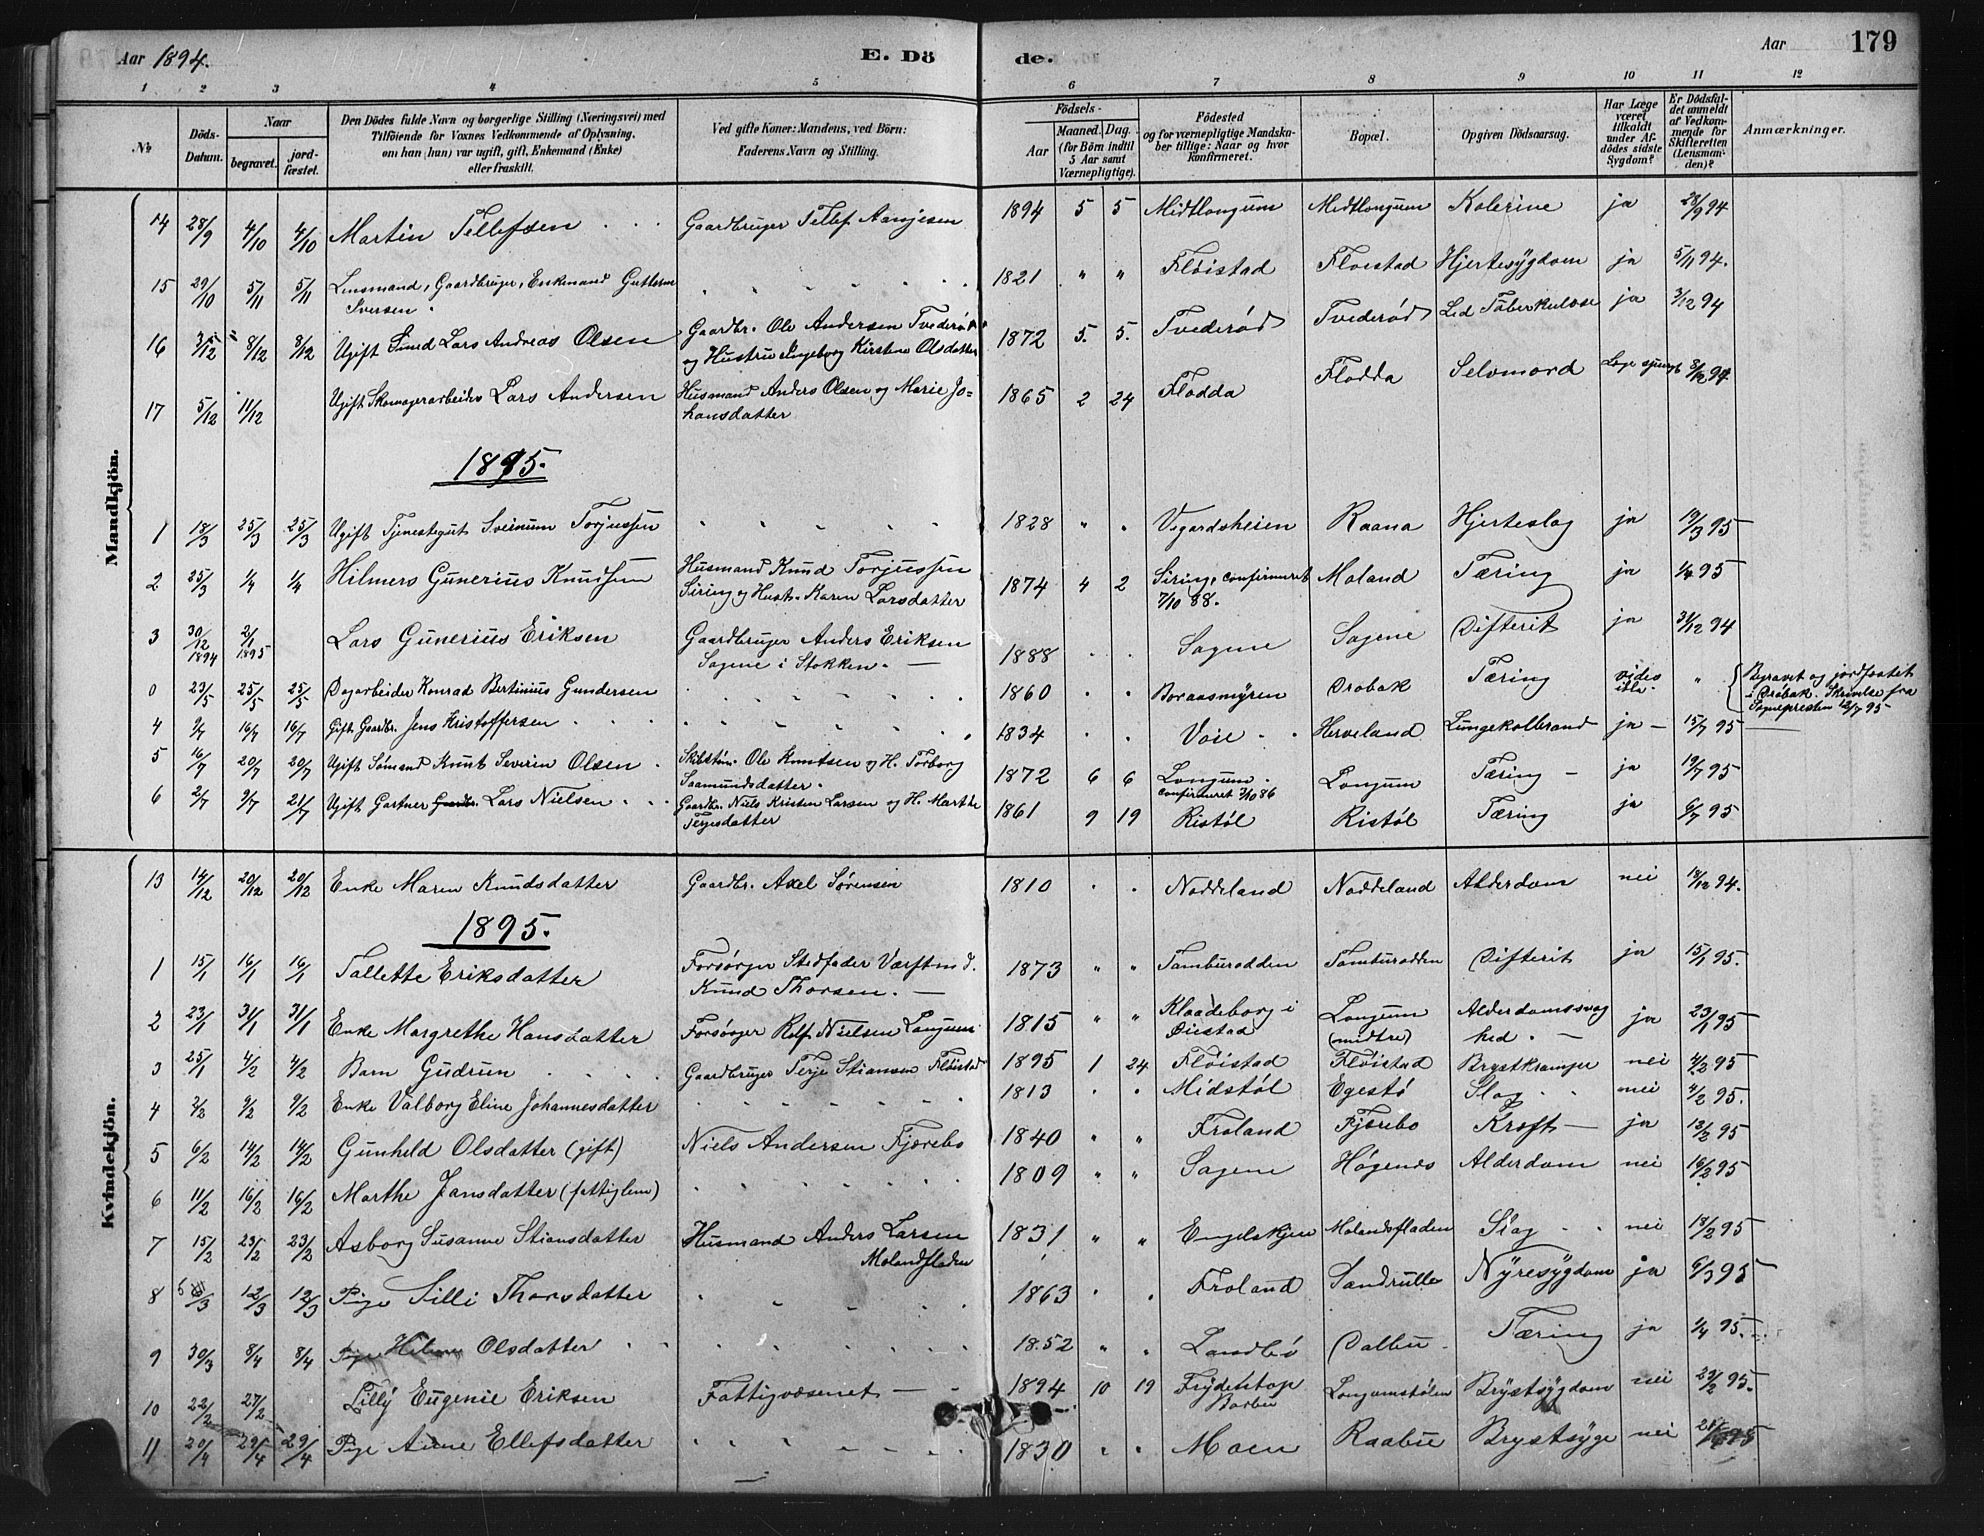 Aar 1894.
E. Dö
de.
Aar
179
1 2 3 4 5 6 7 8 9 10 11 12
№
Döds-Datum.
Naar
begravet.
jord-fæstet.
Den Dödes fulde Navn og borgerlige Stilling (Næringsvei) med
Tilföiende for Voxnes Vedkommende af Oplysning,
om han (hun) var ugift, gift, Enkemand (Enke)
eller fraskilt.
Ved gifte Koner: Mandens, ved Börn:
Faderens Navn og Stilling.
Födsels-
Aar
Maaned. Dag.
(for Börn indtil
5 Aar samt
Værnepligtige).
Födested
og for værnepligtige Mandska-
ber tillige: Naar og hvor
konfirmeret.
Bopæl.
Opgiven Dödsaarsag.
Har Læge
været
tilkaldt
under Af-
dödes sidste
Sygdom?
Er Dödsfal-
det anmeldt
af Vedkom-
mende for
Skifteretten
(Lensman-
den)?
Anmærkninger.
Mandkjön.
14 28/9 4/10 4/10 Martin Tellefsen Gaardbruger Tellef Aanjesen 1894 5 5 Midtlongum Midtlongum Kolerine ja 28/9 94
15 29/10 5/11 5/11 Lensmand, Gaardbruger, Enkemand Guttorm 1821 " " Fløistad Floistad Hjertesygdom ja 5/11 94.
Iversen.
16 3/12 8/12 8/12 Ugift Smed Lars Andreas Olsen Gaardbr. Ole Andersen Tvederød 1872 5. 5. Tvederød Tvederød Led Tuberkulose ja 3/12 94
og Hustru Ingeborg Kirstine Olsdatter
17 5/12 11/12 Ugift Skomagerarbeider Lars Andersen Husmand Anders Olsen og Marie Jo- 1865 2 24 Flodda Flodda Selvmord 8/12 94
hansdatter
1895.
1 18/3 25/3 25/3 Ugift Tjenestegut Sveinum Torjussen 1828 " " Vegardsheien Raana Hjerteslag ja 19/3 95
2 25/3 1/4 1/4 Hilmers Gunerius Knudsen Husmand Knud Torjussen 1874 4 2 Siring, confirmeret Moland Tæring ja 1/4 95
Siring og Hust. Karen Larsdatter 7/10 88.
3 30/12 1894 2/1 1895 Lars Gunerius Eriksen Gaardbruger Anders Eriksen 1888 Sagene Sagene Difterit ja 31/12 94
Sagene i Stokken.
0 23/5 25/5 25/5 Dagarbeider Konrad Bertinius Gundersen 1860 Boraasmyren Drøbak Tæring " Begravet og jordfæstet
i Drøbak. Skrivelse fra
Sognepresten 12/7 95
4 9/7 16/7 16/7 Gift Gaardbr. Jens Kristoffersen 1834 Voie Herveland Lungekolbrand ja 15/7 95
5 16/7 20/7 20/7 Ugift Sømand Knut Severin Olsen Skibstøm. Ole Knutsen og H. Torborg 1872 6 6 Longum Longum Tæring ja 19/7 95
Saamundsdatter. confirmeret 3/10 86
6 2/7 9/7 21/7 Ugift Gartner Lars Nielsen Gaardbr. Niels Kristen Larsen og H. Marthe 1861 9 19 Ristøl Ristøl Tæring ja 6/7 95
Terjesdatter
Kvindekjön.
13 14/12 20/12 20/12 Enke Maren Knudsdatter Gaardbr. Axel Sørensen 1810 Noddeland Noddeland Alderdom nei 18/12 94.
1895.
1 15/1 16/1 16/1 Tallette Eriksdatter Forsørger Stedfader Værftmd. 1873 " " Tamburodden Tamburodden Difterit ja 15/1 95.
Knud Thorsen.
2 23/1 31/1 31/1 Enke Margrethe Hansdatter Forsørger Rolf Nielsen Longum 1815 " " Klaadeborg i Longum Alderdomssvag ja 23/1 95
Øiestad (midtre) hed.
3 25/1 4/2 4/2 Barn Gudrun Gaardbruger Terje Stiansen Fløistad 1895 1 24 Fløistad Fløistad Brystkramper nei 4/2 95
4 2/2 9/2 9/2 Enke Valborg Eline Johannesdatter 1813 Midstøl Egestø Slag nei 4/2 95.
5 6/2 14/2 14/2 Gunheld Olsdatter (gift) Niels Andersen Fjærebo 1840 " " Froland Fjærebo Kræft ja 13/2 95
6 11/2 16/2 16/2 Marthe Jansdatter (fattiglem) 1809 " " Sagene Høgenes Alderdom nei 16/2 95
7 15/2 23/2 23/2 Asborg Susanne Stiansdatter Husmand Anders Larsen 1831 " " Engelskjen Molandsfladen Slag nei 18/2 95
Molandsfladen
8 12/3 12/3 Pige Silli Thorsdatter 1863 Froland Sandrulle Nyresygdom ja 6/3 95
9 30/3 8/4 8/4 Pige Olsdatter 1852 " " Landbø Dalbu Tæring ja 1/4 95.
10 22/2 27/2 Lilly Eugenie Eriksen Fattigvæsenet 1894 10 19 Frydentop Longumstølen Brystsygdom nei 23/2 95.
Barbu
11 20/4 29/4 29/4 Pige Anne Ellefsdatter 1830 Moen Raabu Brystsyge nei